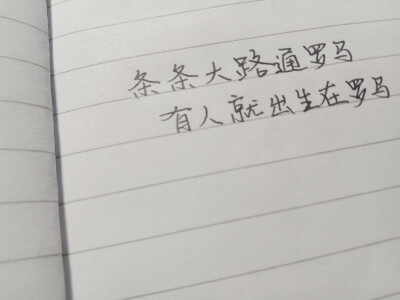 条条大路通罗马
有人就出生在罗马